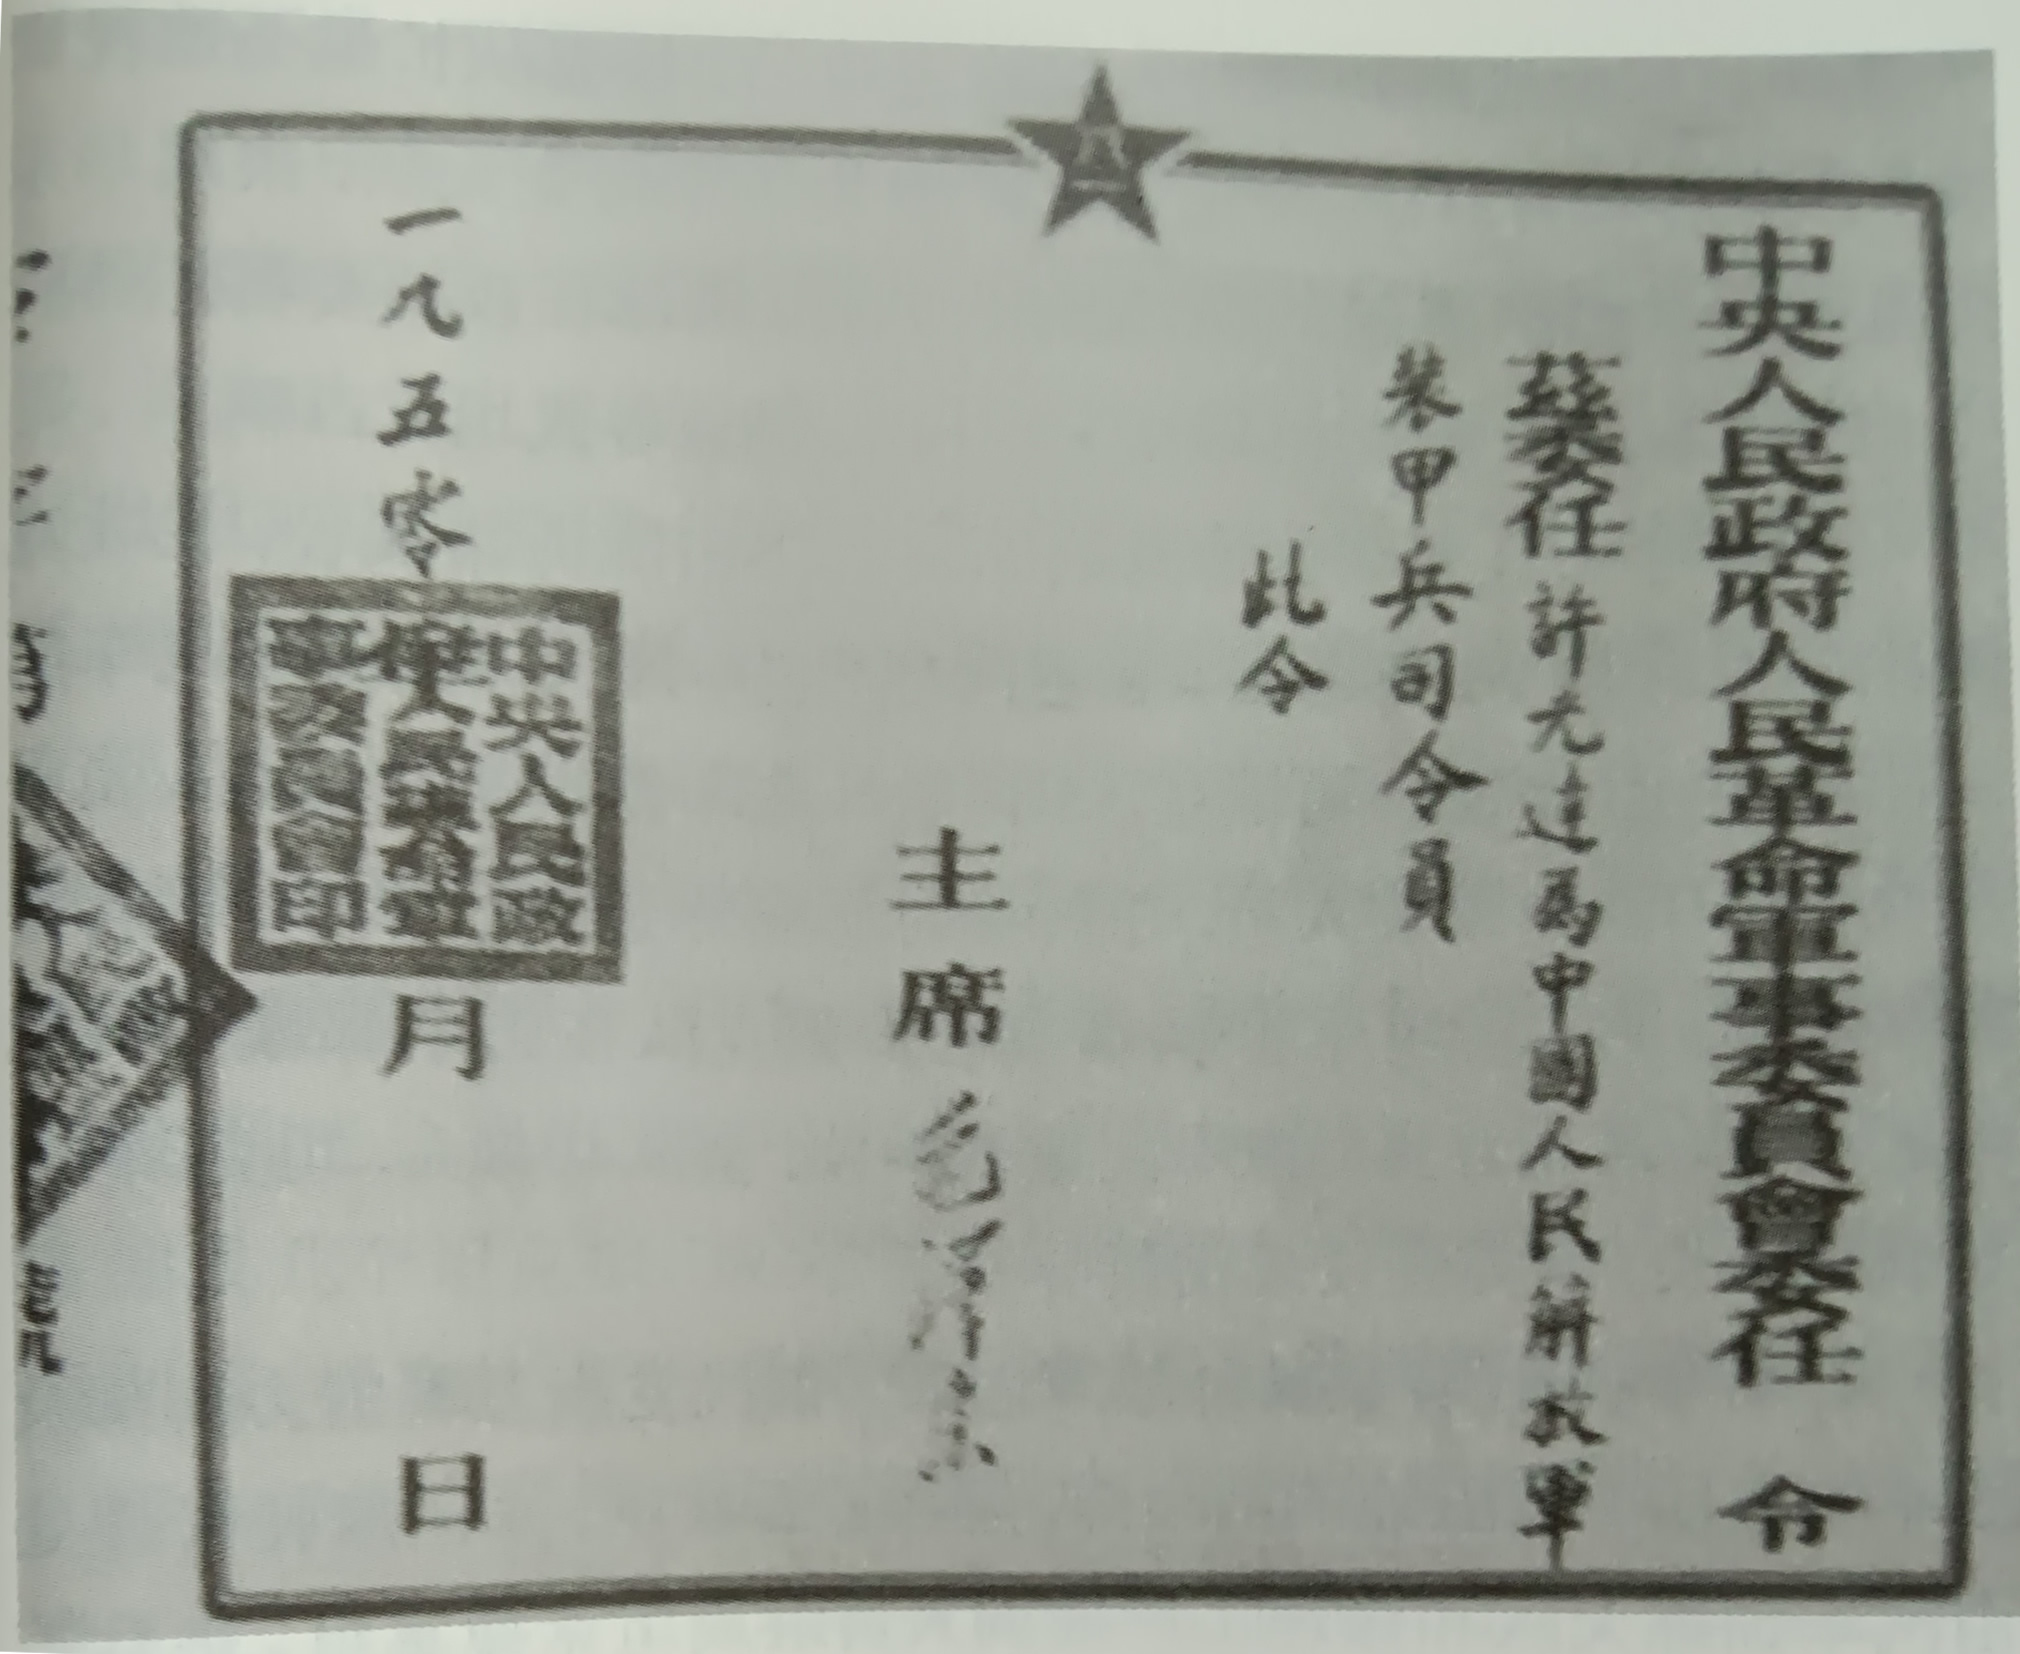 中央人民政府人民革命軍事委員會委任 令
茲委任許光達為中國人民解放軍
裝甲兵司令員
此令
主席 毛澤東
一九五零年 月 日
中央人民政
府人民革命軍
事委員會印
八一